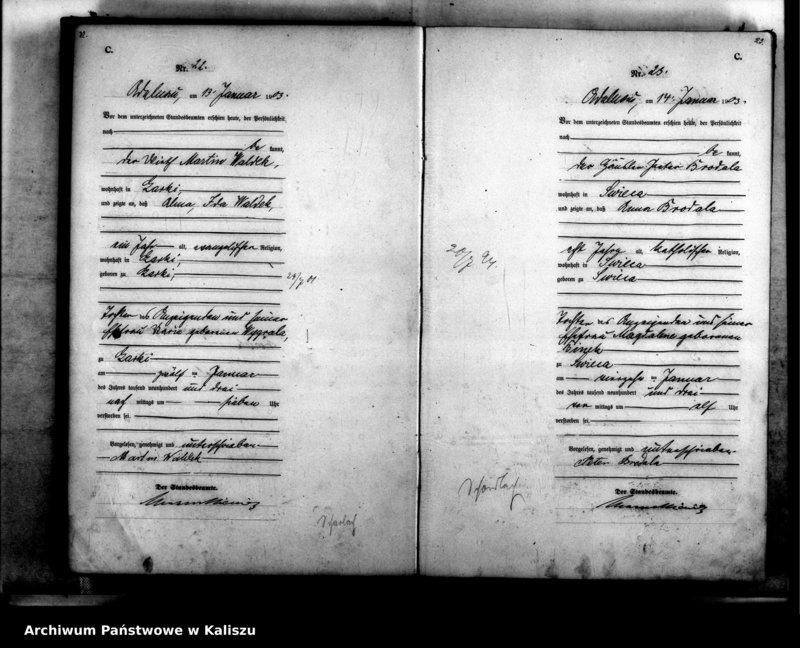 C.
Nr. 22.
am 13. Januar 1903.
Vor dem unterzeichneten Standesbeamten erschien heute, der Persönlichkeit
nach
be kannt,
der Wirth Martin Waldek,
wohnhaft in Garki,
und zeigte an, daß Alma, Ida Waldek,
ein Jahr alt, evangelischer Religion,
wohnhaft in Garki,
geboren zu Garki,
Tochter des Anzeigenden und seiner
Ehefrau geborenen
zu Garki
am zwölf ten Januar
des Jahres tausend neunhundert und drei
nach mittags um sieben Uhr
verstorben sei.
Vorgelesen, genehmigt und unterschrieben
Martin Waldek
Der Standesbeamte.
Scharlach
23
C.
Nr. 23.
am 14. Januar 1903.
Vor dem unterzeichneten Standesbeamten erschien heute, der Persönlichkeit
nach
be kannt,
der Häusler Peter Brodala
wohnhaft in Swieca
und zeigte an, daß Anna Brodala
alt, katholischer Religion,
wohnhaft in Swieca
geboren zu Swieca
Tochter des Anzeigenden und seiner
Ehefrau Magdalene geborenen
zu Swieca
am vierzehn ten Januar
des Jahres tausend neunhundert und drei
vor mittags um elf Uhr
verstorben sei.
Vorgelesen, genehmigt und unterschrieben
Peter Brodala
Der Standesbeamte.
Scharlach
Archiwum Państwowe w Kaliszu